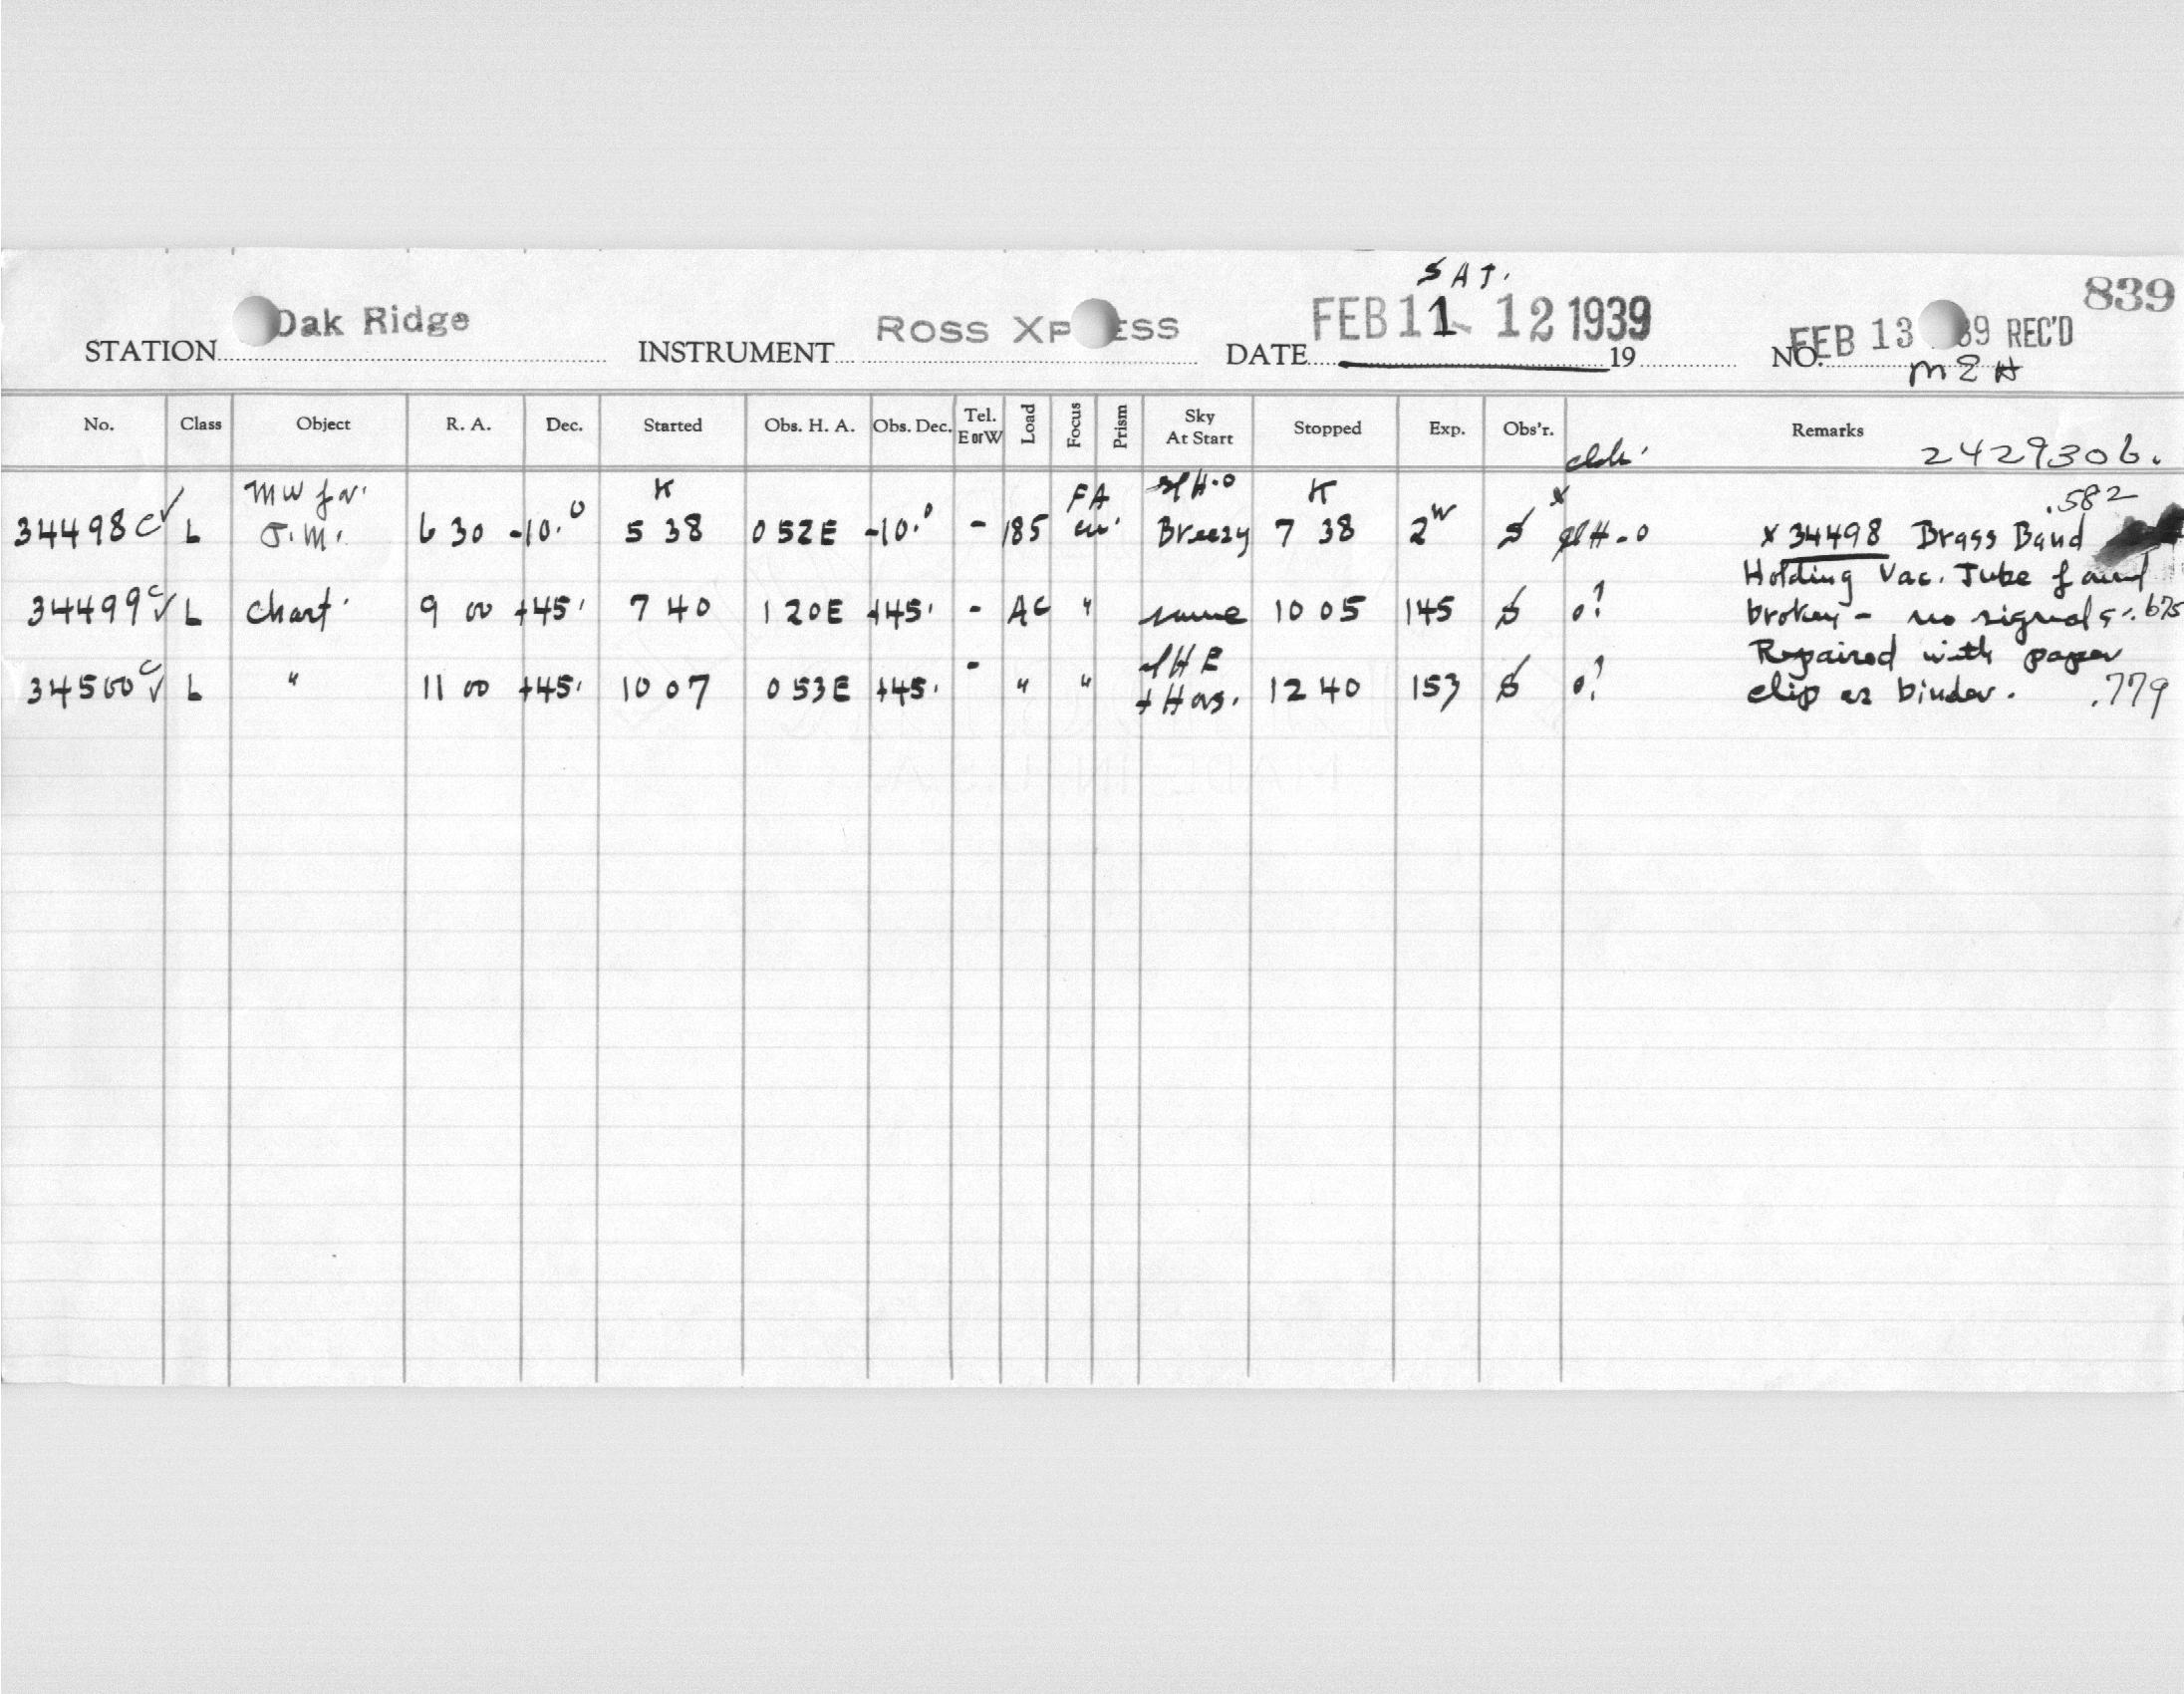 SAT.
839
STATION Oak Ridge INSTRUMENT ROSS XPRESS DATE FEB 11 - 12 1939 19 NO. FEB 13 39 REC'D
MEH
No. Class Object R. A. Dec. Started Obs. H. A. Obs. Dec. Tel. E or W Load Focus Prism Sky At Start Stopped Exp. Obs'r. Remarks
2429306.
MW for K FA H-0 K .582
34498 c ✓ L J.M. 6 30 -10.0 5 38 0 52E -10.0 - 185 Breezy 7 38 2 S H-0 x 34498 Brass Band
Holding Vac. Tube found
34499 c ✓ L Chart 9 00 +45. 7 40 1 20E +45. - AC " same 10 05 145 S 0? broken - no signals. .675
Repaired with paper
34500 c ✓ L " 11 00 +45. 10 07 0 53E +45. - " " + Has. 12 40 153 S 0? clip as binder. .779